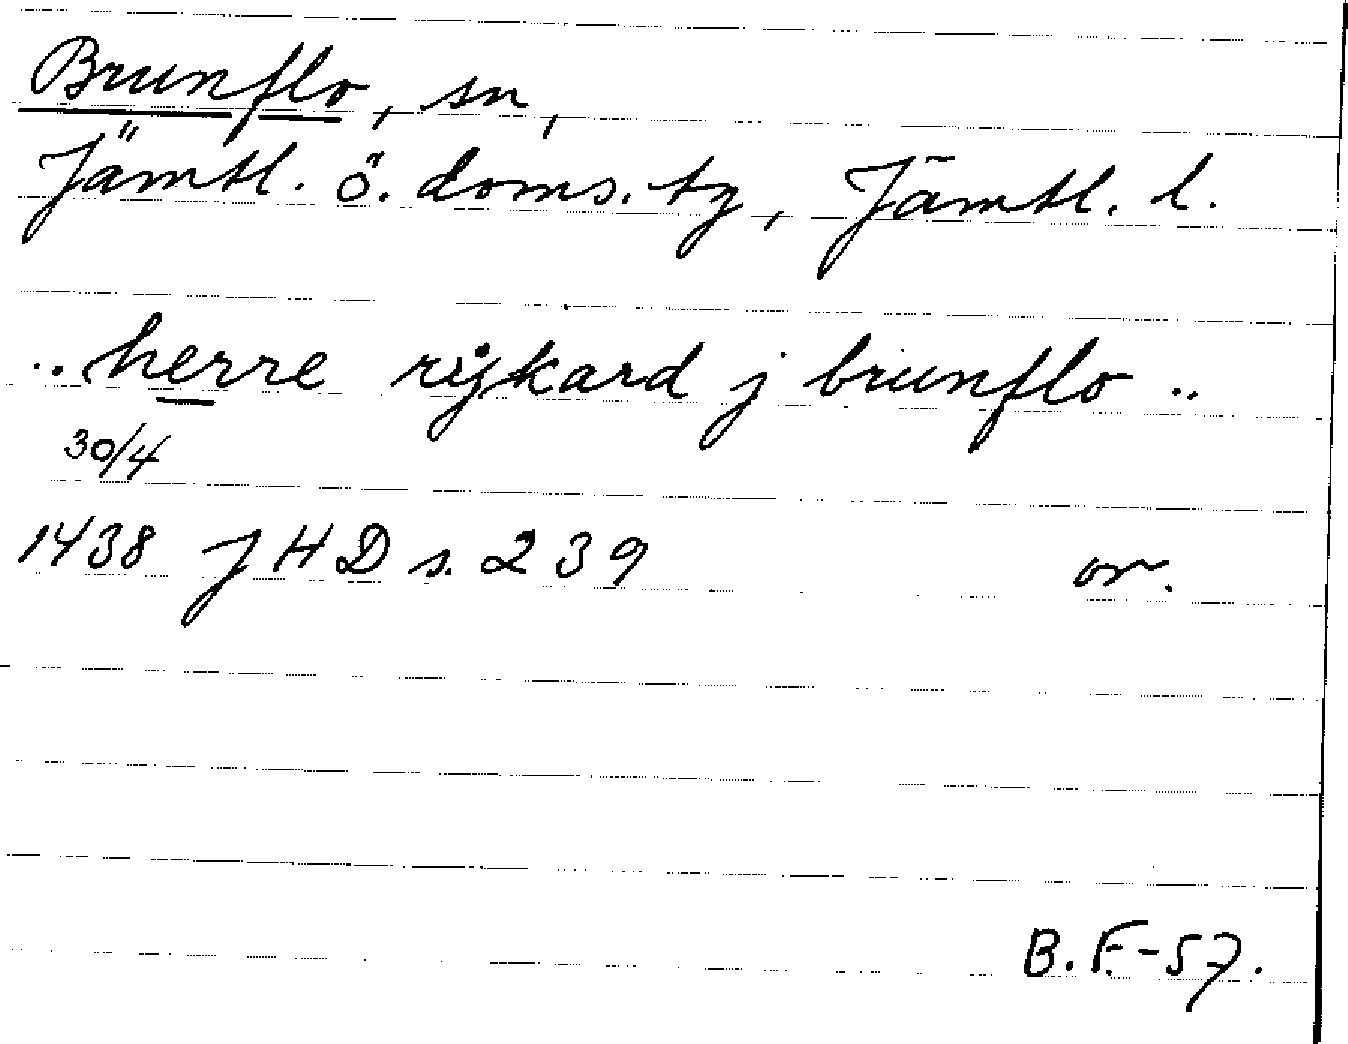 Brunflo, sn,
Jämtl. ö. doms. tg, Jämtl. l.
.. herre rijkard j brunflo ..
30/4
1438 JHD s. 239 or.
B.F.-57.